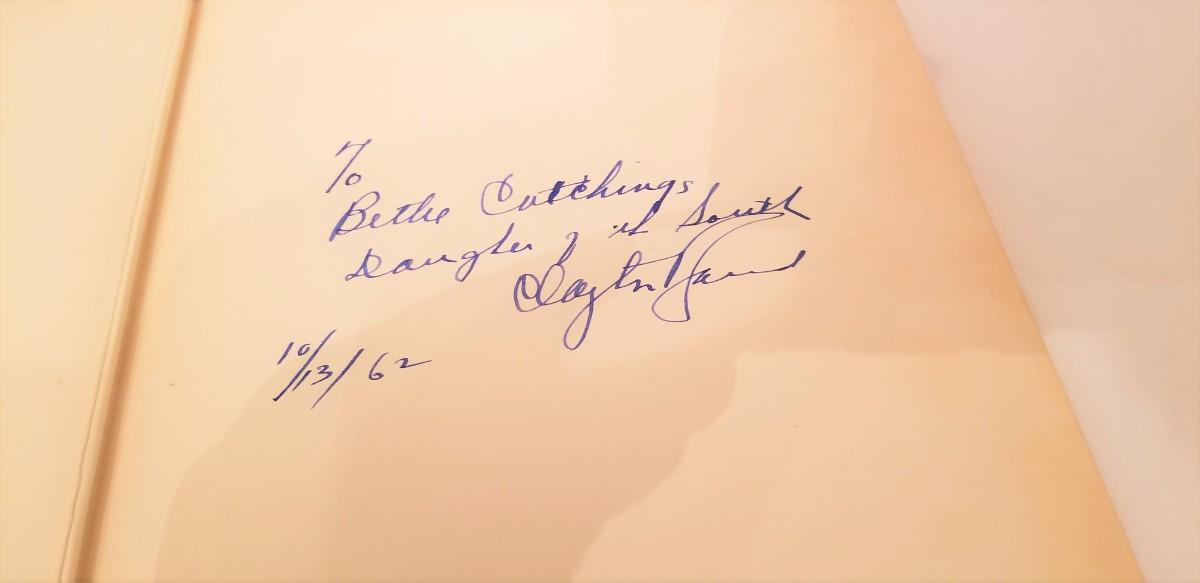 To
Bethe Catchings
Daughter of the South
Clayton Rand
10/13/62